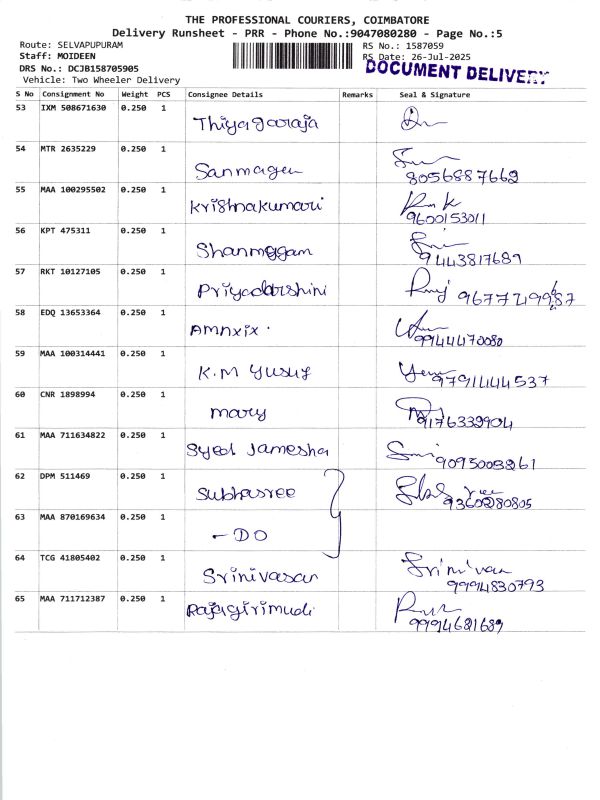 THE PROFESSIONAL COURIERS, COIMBATORE
Delivery Runsheet - PRR - Phone No.:9047080280 - Page No.:5
Route: SELVAPUPURAM RS No.: 1587059
Staff: MOIDEEN RS Date: 26-Jul-2025
DRS No.: DCJB158705905 DOCUMENT DELIVERY
Vehicle: Two Wheeler Delivery
S No Consignment No Weight PCS Consignee Details Remarks Seal & Signature
53 IXM 508671630 0.250 1
Thiyagaraja
54 MTR 2635229 0.250 1
Sanmagen 8056887662
55 MAA 100295502 0.250 1
Krishnakumari 9600153011
56 KPT 475311 0.250 1
Shanmggam 9443817689
57 RKT 10127105 0.250 1
Priyadarshini
58 EDQ 13653364 0.250 1
Amnxix. 9944470080
59 MAA 100314441 0.250 1
K.M Yusuf 9791444537
60 CNR 1898994 0.250 1
mary 9176332904
61 MAA 711634822 0.250 1
Syed Jamesha 9095003261
62 DPM 511469 0.250 1
Subhasree 9360280805
63 MAA 870169634 0.250 1
- DO
64 TCG 41805402 0.250 1
Srinivasan Srinivasan
9994830793
65 MAA 711712387 0.250 1
Rajagirimudi 9994621689